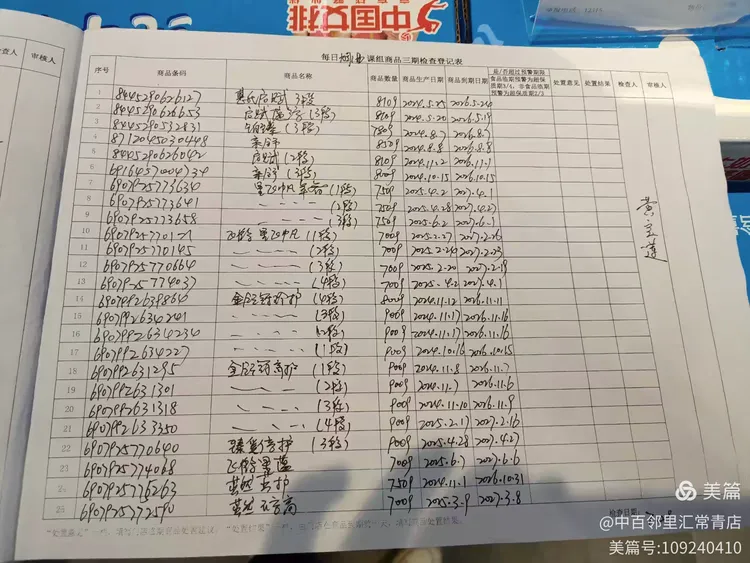 中国奶业
检查人 审核人
每日 课组商品三期检查登记表
序号 商品条码 商品名称 商品数量 商品生产日期 商品到期日期 是/否超过预警期限 食品临期预警为超保质期3/4,非食品临期预警为超保质期2/3 处置意见 处置结果 检查人 审核人
1 8445290626127 启赋 3段 810g 2024.5.25 2026.5.24
2 8445290626653 启赋蕴淳(3段) 810g 2024.5.20 2026.5.19
3 8445290532831 (3段) 780g 2024.8.7 2026.8.7
4 8712045030448 亲舒 850g 2024.8.8 2026.8.8
5 8445290626042 启赋(2段) 810g 2024.11.2 2026.11.1
6 6916457004734 亲舒(3段) 800g 2024.10.15 2026.10.15
7 6907925773634 星飞帆卓睿(1段) 750g 2025.4.2 2027.4.1
8 6907925773641 〃 〃 〃 (2段) 750g 2025.4.28 2027.4.27
9 6907925773658 〃 〃 〃 (3段) 750g 2025.6.2 2027.6.1
10 6907925770121 飞鹤星飞帆(1段) 700g 2025.2.27 2027.2.26
11 6907925770145 〃 〃 〃 (2段) 700g 2025.2.24 2027.2.23
12 6907925770664 〃 〃 〃 (3段) 700g 2025.2.20 2027.2.19
13 6907925774037 〃 〃 〃 (4段) 700g 2025.4.2 2027.4.1
14 6907992639864 金领冠珍护(4段) 800g 2024.11.12 2026.11.11
15 6907992634241 〃 〃 〃 (3段) 900g 2024.11.17 2026.11.16
16 6907992634234 〃 〃 〃 (2段) 900g 2024.11.17 2026.11.16
17 6907992634227 〃 〃 〃 (1段) 900g 2024.10.16 2026.10.15
18 6907992631295 金领冠菁护(1段) 900g 2024.11.8 2026.11.7
19 6907992631301 〃 〃 〃 (2段) 900g 2024.11.7 2026.11.6
20 6907992631318 〃 〃 〃 (3段) 900g 2024.11.10 2026.11.9
21 6907992633350 〃 〃 〃 (4段) 900g 2025.2.17 2027.2.16
22 6907925770640 臻爱倍护(3段) 900g 2025.4.28 2027.4.27
23 6907925774068 飞鹤星蕴 700g 2025.6.7 2027.6.6
24 6907925776263 茁然倍护 750g 2024.11.1 2026.10.31
25 6907925772590 茁然 高 700g 2025.3.9 2027.3.8
检查日期:
美篇
@中百邻里汇常青店
美篇号:109240410